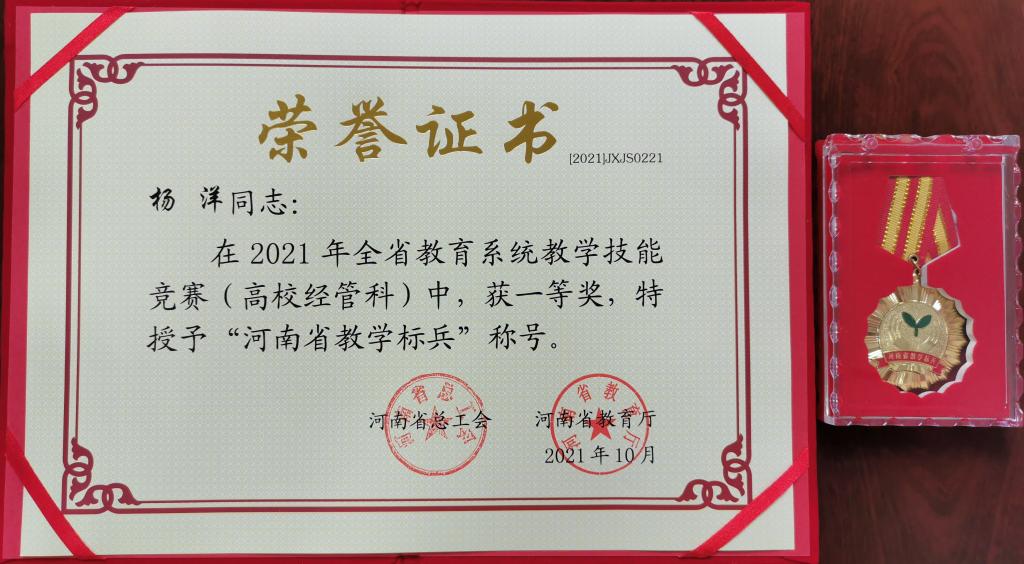 荣誉证书
[2021]JXJS0221
杨 洋同志：
在 2021 年全省教育系统教学技能
竞赛（高校经管科）中，获一等奖，特
授予“河南省教学标兵”称号。
河南省总工会
河南省教育厅
2021 年 10 月
河南省总工会
河南省教育厅
河南省教学标兵